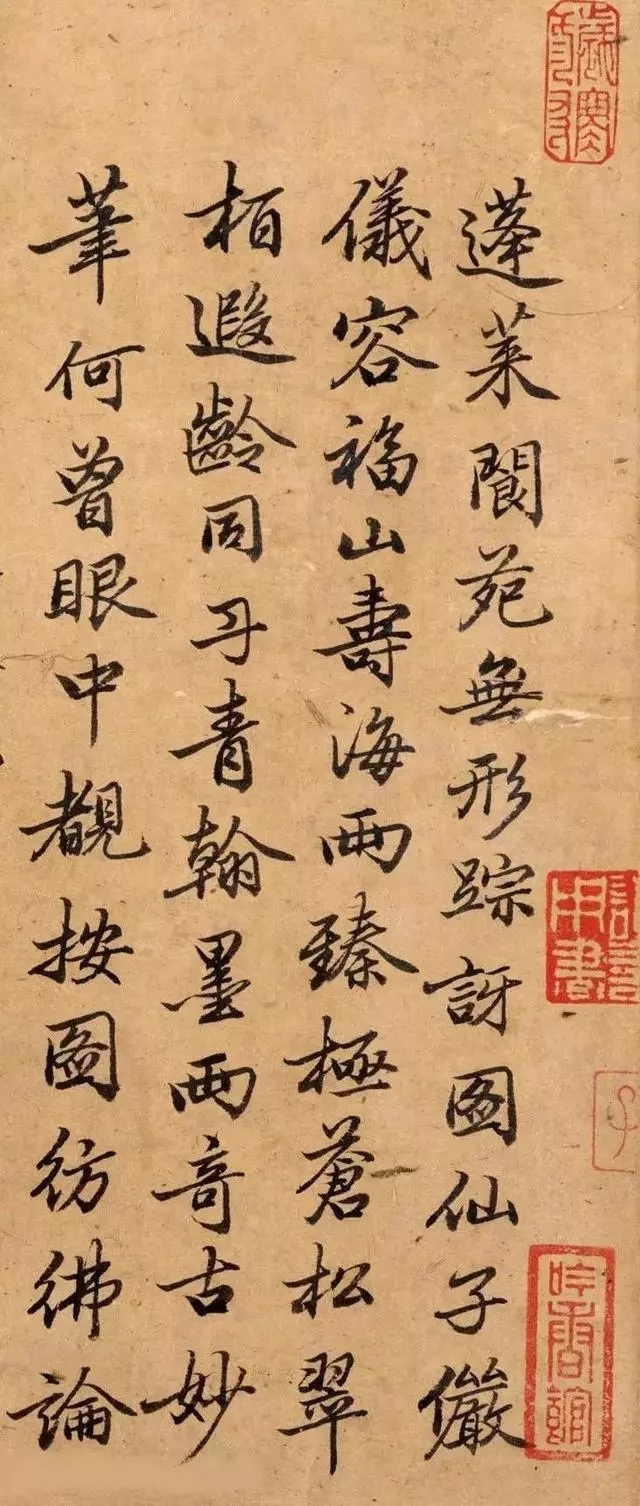 蓬莱閬苑無形踪訝图仙子儼
儀容福山壽海兩臻極蒼松翠
栢遐齡同丹青翰墨兩竒古妙
筆何曾眼中覩按圖彷彿論